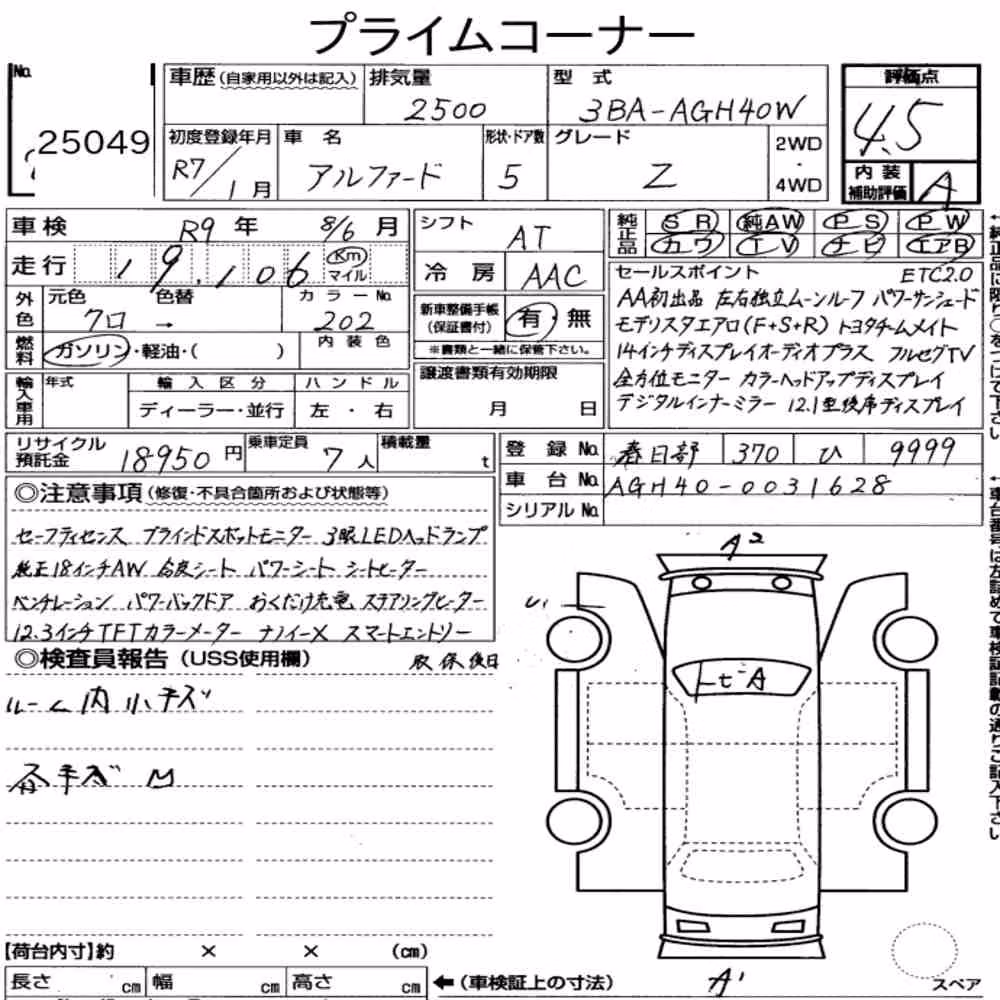 プライムコーナー
No.
25049
車歴(自家用以外は記入)
排気量
2500
型式
3BA-AGH40W
評価点
4.5
初度登録年月
R7/1月
車名
アルファード
形状・ドア数
5
グレード
Z
2WD
・
4WD
内装
補助評価
A
車検 R9年 8/6月
シフト AT
純正品
SR 純AW PS PW
カワ TV ナビ エアB
走行 19,106 Km マイル
冷房 AAC
セールスポイント ETC2.0
AA初出品 左右独立ムーンルーフ パワーサンシェード
モデリスタエアロ(F+S+R) トヨタチームメイト
14インチディスプレイオーディオプラス フルセグTV
全方位モニター カラーヘッドアップディスプレイ
デジタルインナーミラー 12.1型後席ディスプレイ
外色
元色 色替
クロ →
カラーNo.
202
新車整備手帳
(保証書付)
有・無
※書類と一緒に保管下さい。
燃料
ガソリン・軽油・( )
内装色
譲渡書類有効期限
月 日
輸入車用
年式
輸入区分
ディーラー・並行
ハンドル
左・右
リサイクル
預託金
18950円
乗車定員
7人
積載量
t
登録No. 春日部 370 ひ 9999
車台No. AGH40-0031628
シリアルNo.
◎注意事項(修復・不具合箇所および状態等)
セーフティセンス ブラインドスポットモニター 3眼LEDヘッドランプ
純正18インチAW 合皮シート パワーシート シートヒーター
ベンチレーション パワーバックドア おくだけ充電 ステアリングヒーター
12.3インチTFTカラーメーター ナノイーX スマートエントリー
◎検査員報告(USS使用欄)
取保後日
ルーム内小キズ
A2
U1
トビA
A1
【荷台内寸】約 × × (cm)
長さ cm 幅 cm 高さ cm
←(車検証上の寸法)
スペア